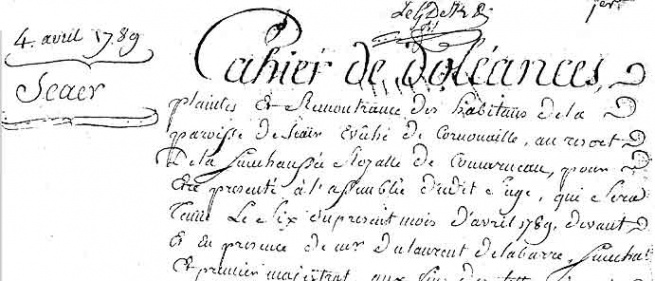 4. avril 1789
Scaer
Cahier de Doléances,
plaintes Et Remontrance des habitans de la
paroisse de Scair Evêché de Cornouaille, au resort
De la Senechaussée Royalle de Concarneau, pour
Etre presenté à l'assemblée dudit Siege, qui Sera
Tenue Le Six du present mois D'avril 1789. devant
Et En presence de mr du laurent de labarre, Senechal
Et premier magistrat, aux fins